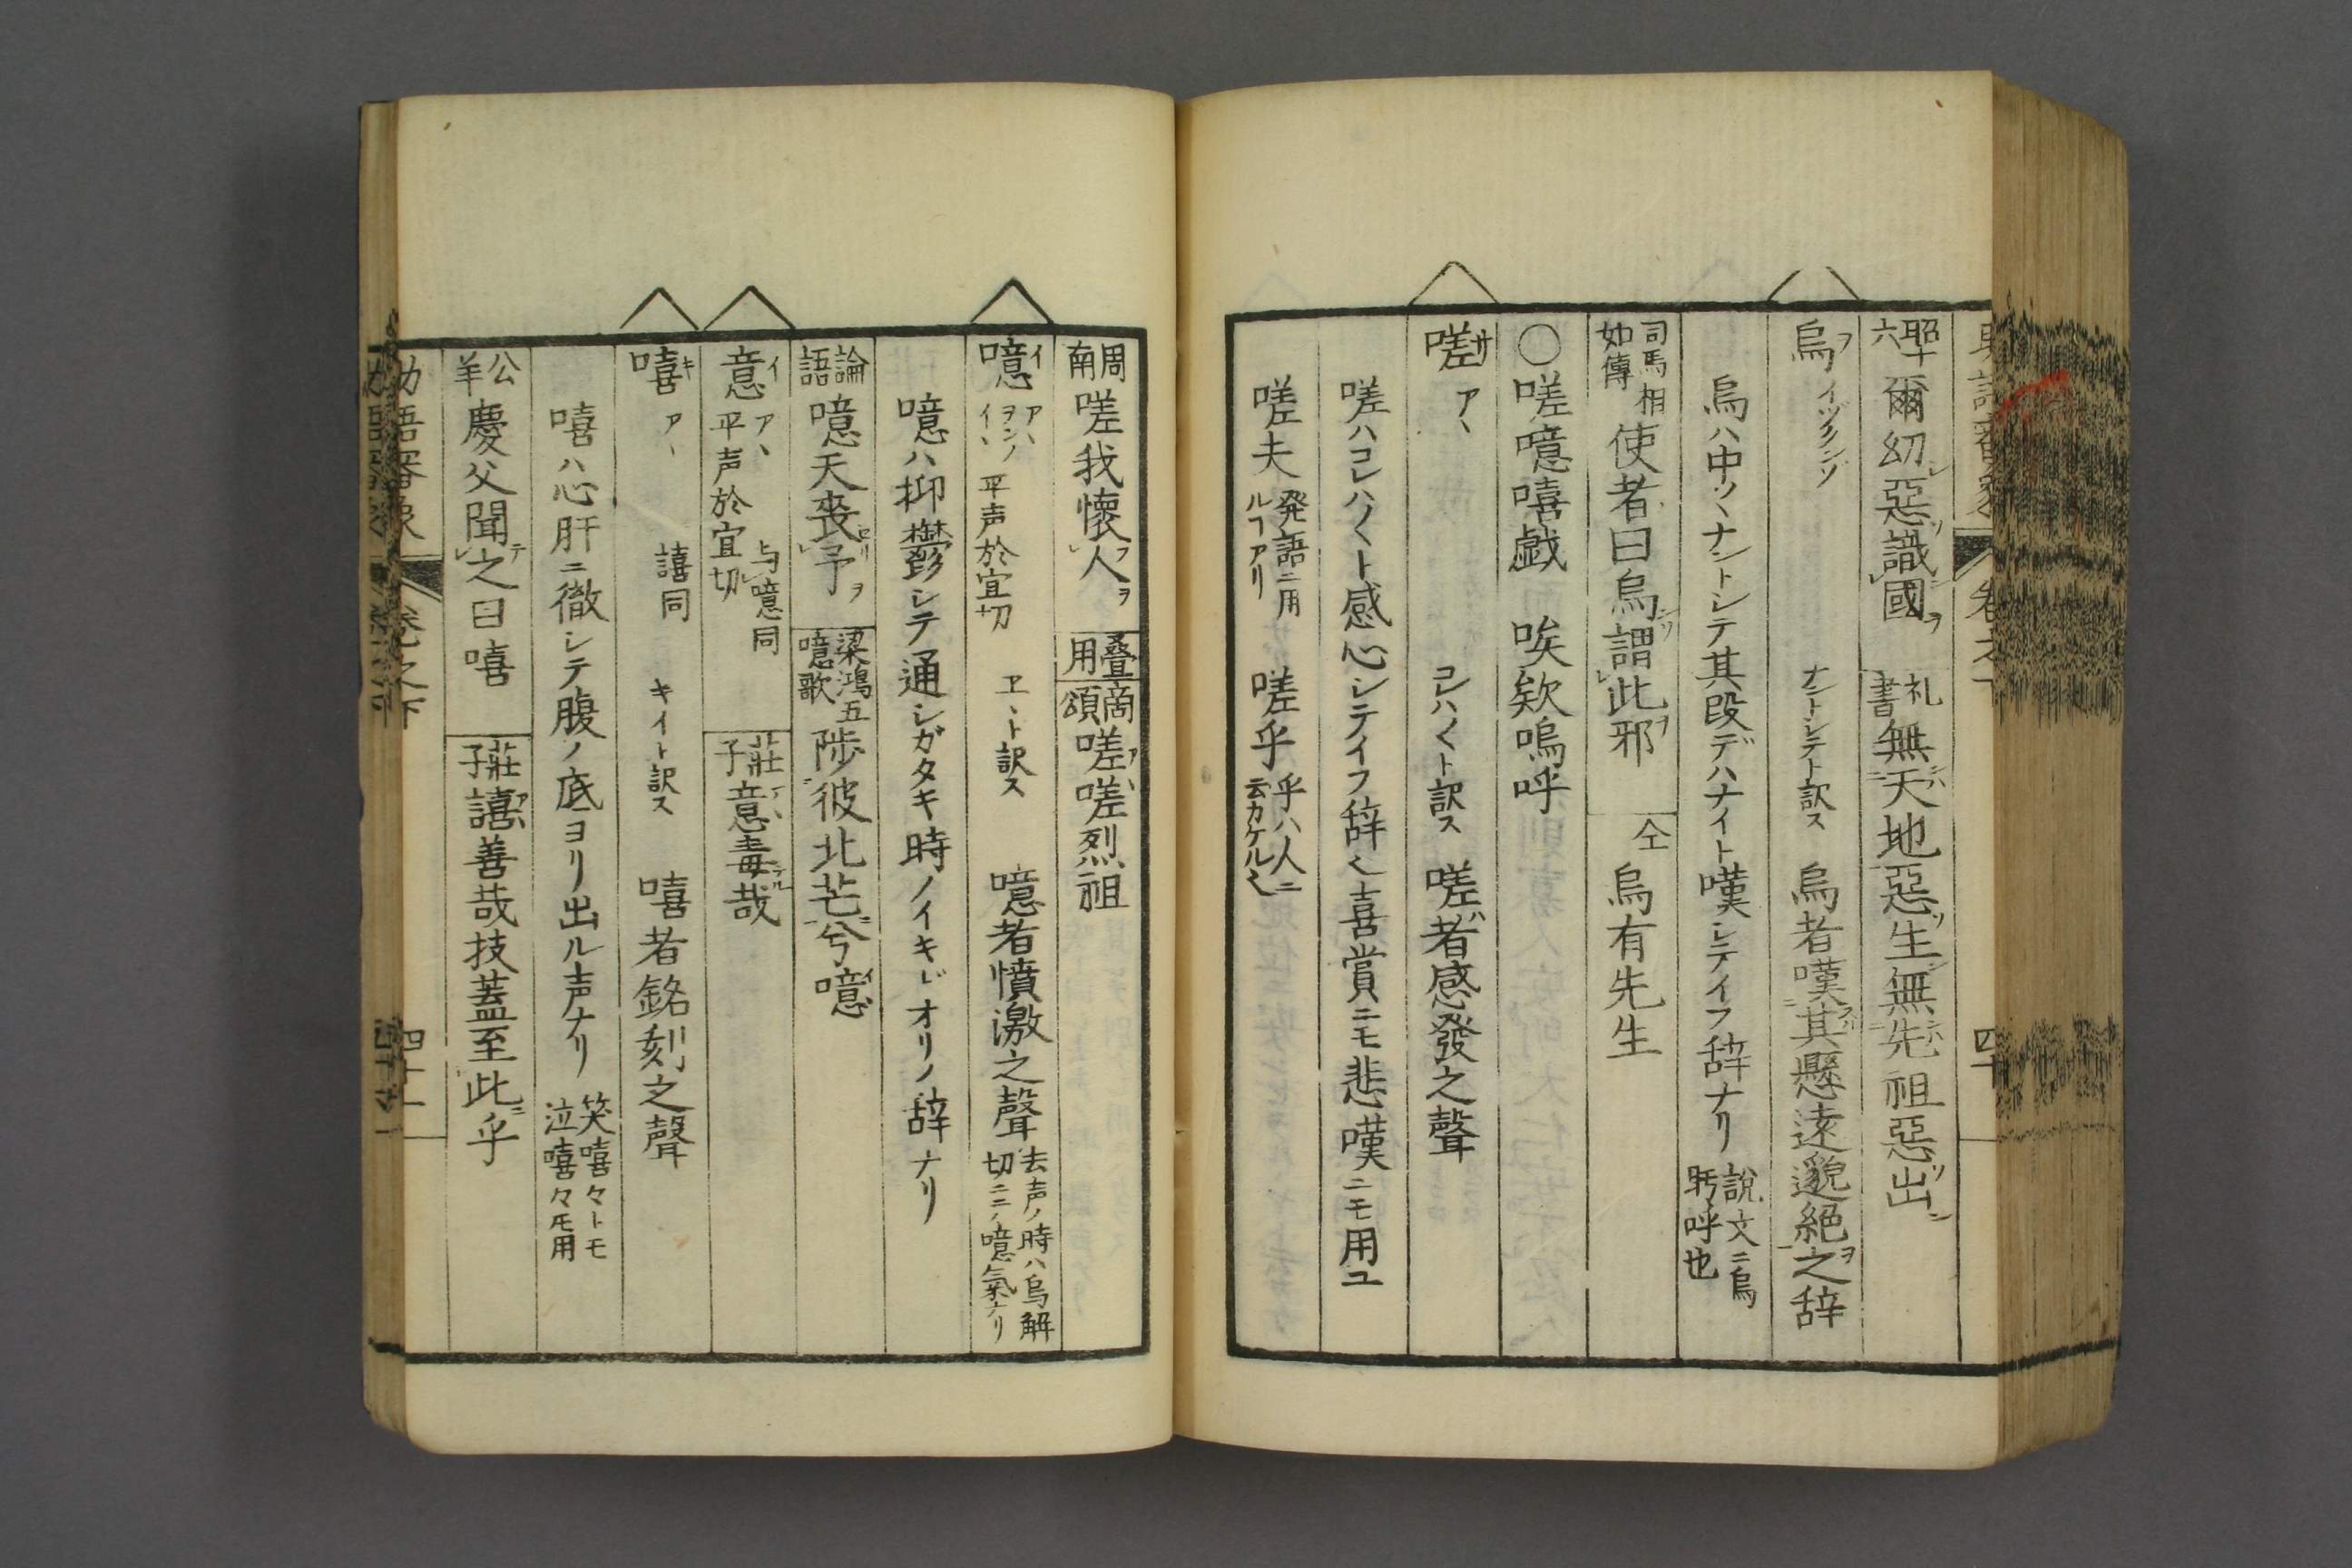 昭十六 爾幼惡識國 礼書 無天地惡生無先祖惡出
烏 ヲ イヅクンゾ ナントシテト訳ス 烏者嘆其懸遠邈絕之辞
烏ハ中々ナントシテ其段デハナイト嘆シテイフ辞ナリ 說文ニ烏𥃳呼也
司馬相如傳 使者曰烏謂此邪 仝 烏有先生
〇嗟噫嘻戯 唉欸嗚呼
嗟 サ アヽ コレハ〱ト訳ス 嗟者感發之聲
嗟ハコレハ〱ト感心シテイフ辞也喜賞ニモ悲嘆ニモ用ユ
嗟夫 発語ニ用ルヿアリ 嗟乎 乎ハ人ニ云カケル也
周南 嗟我懷人ヲ 疊用 商頌 嗟嗟烈祖
噫 イ アヽ ヲンノイヽ 平声於宜切 ヱヽト訳ス 噫者憤激之聲 去声ノ時ハ烏解切ニ〆噫氣ナリ
噫ハ抑鬱シテ通シガタキ時ノイキドオリノ辞ナリ
論語 噫天喪予ヲ 梁鴻五噫歌 陟彼北芒兮噫
意 イ アヽ 平声於宜切 与噫同 莊子 意毒哉
嘻 キ アヽ 譆同 キイト訳ス 嘻者銘刻之聲
嘻ハ心肝ニ徹シテ腹ノ底ヨリ出ル声ナリ 笑嘻々トモ泣嘻々モ用
公羊 慶父聞之曰嘻 莊子 譆善哉技蓋至此乎
助語審象 卷之下 四十一